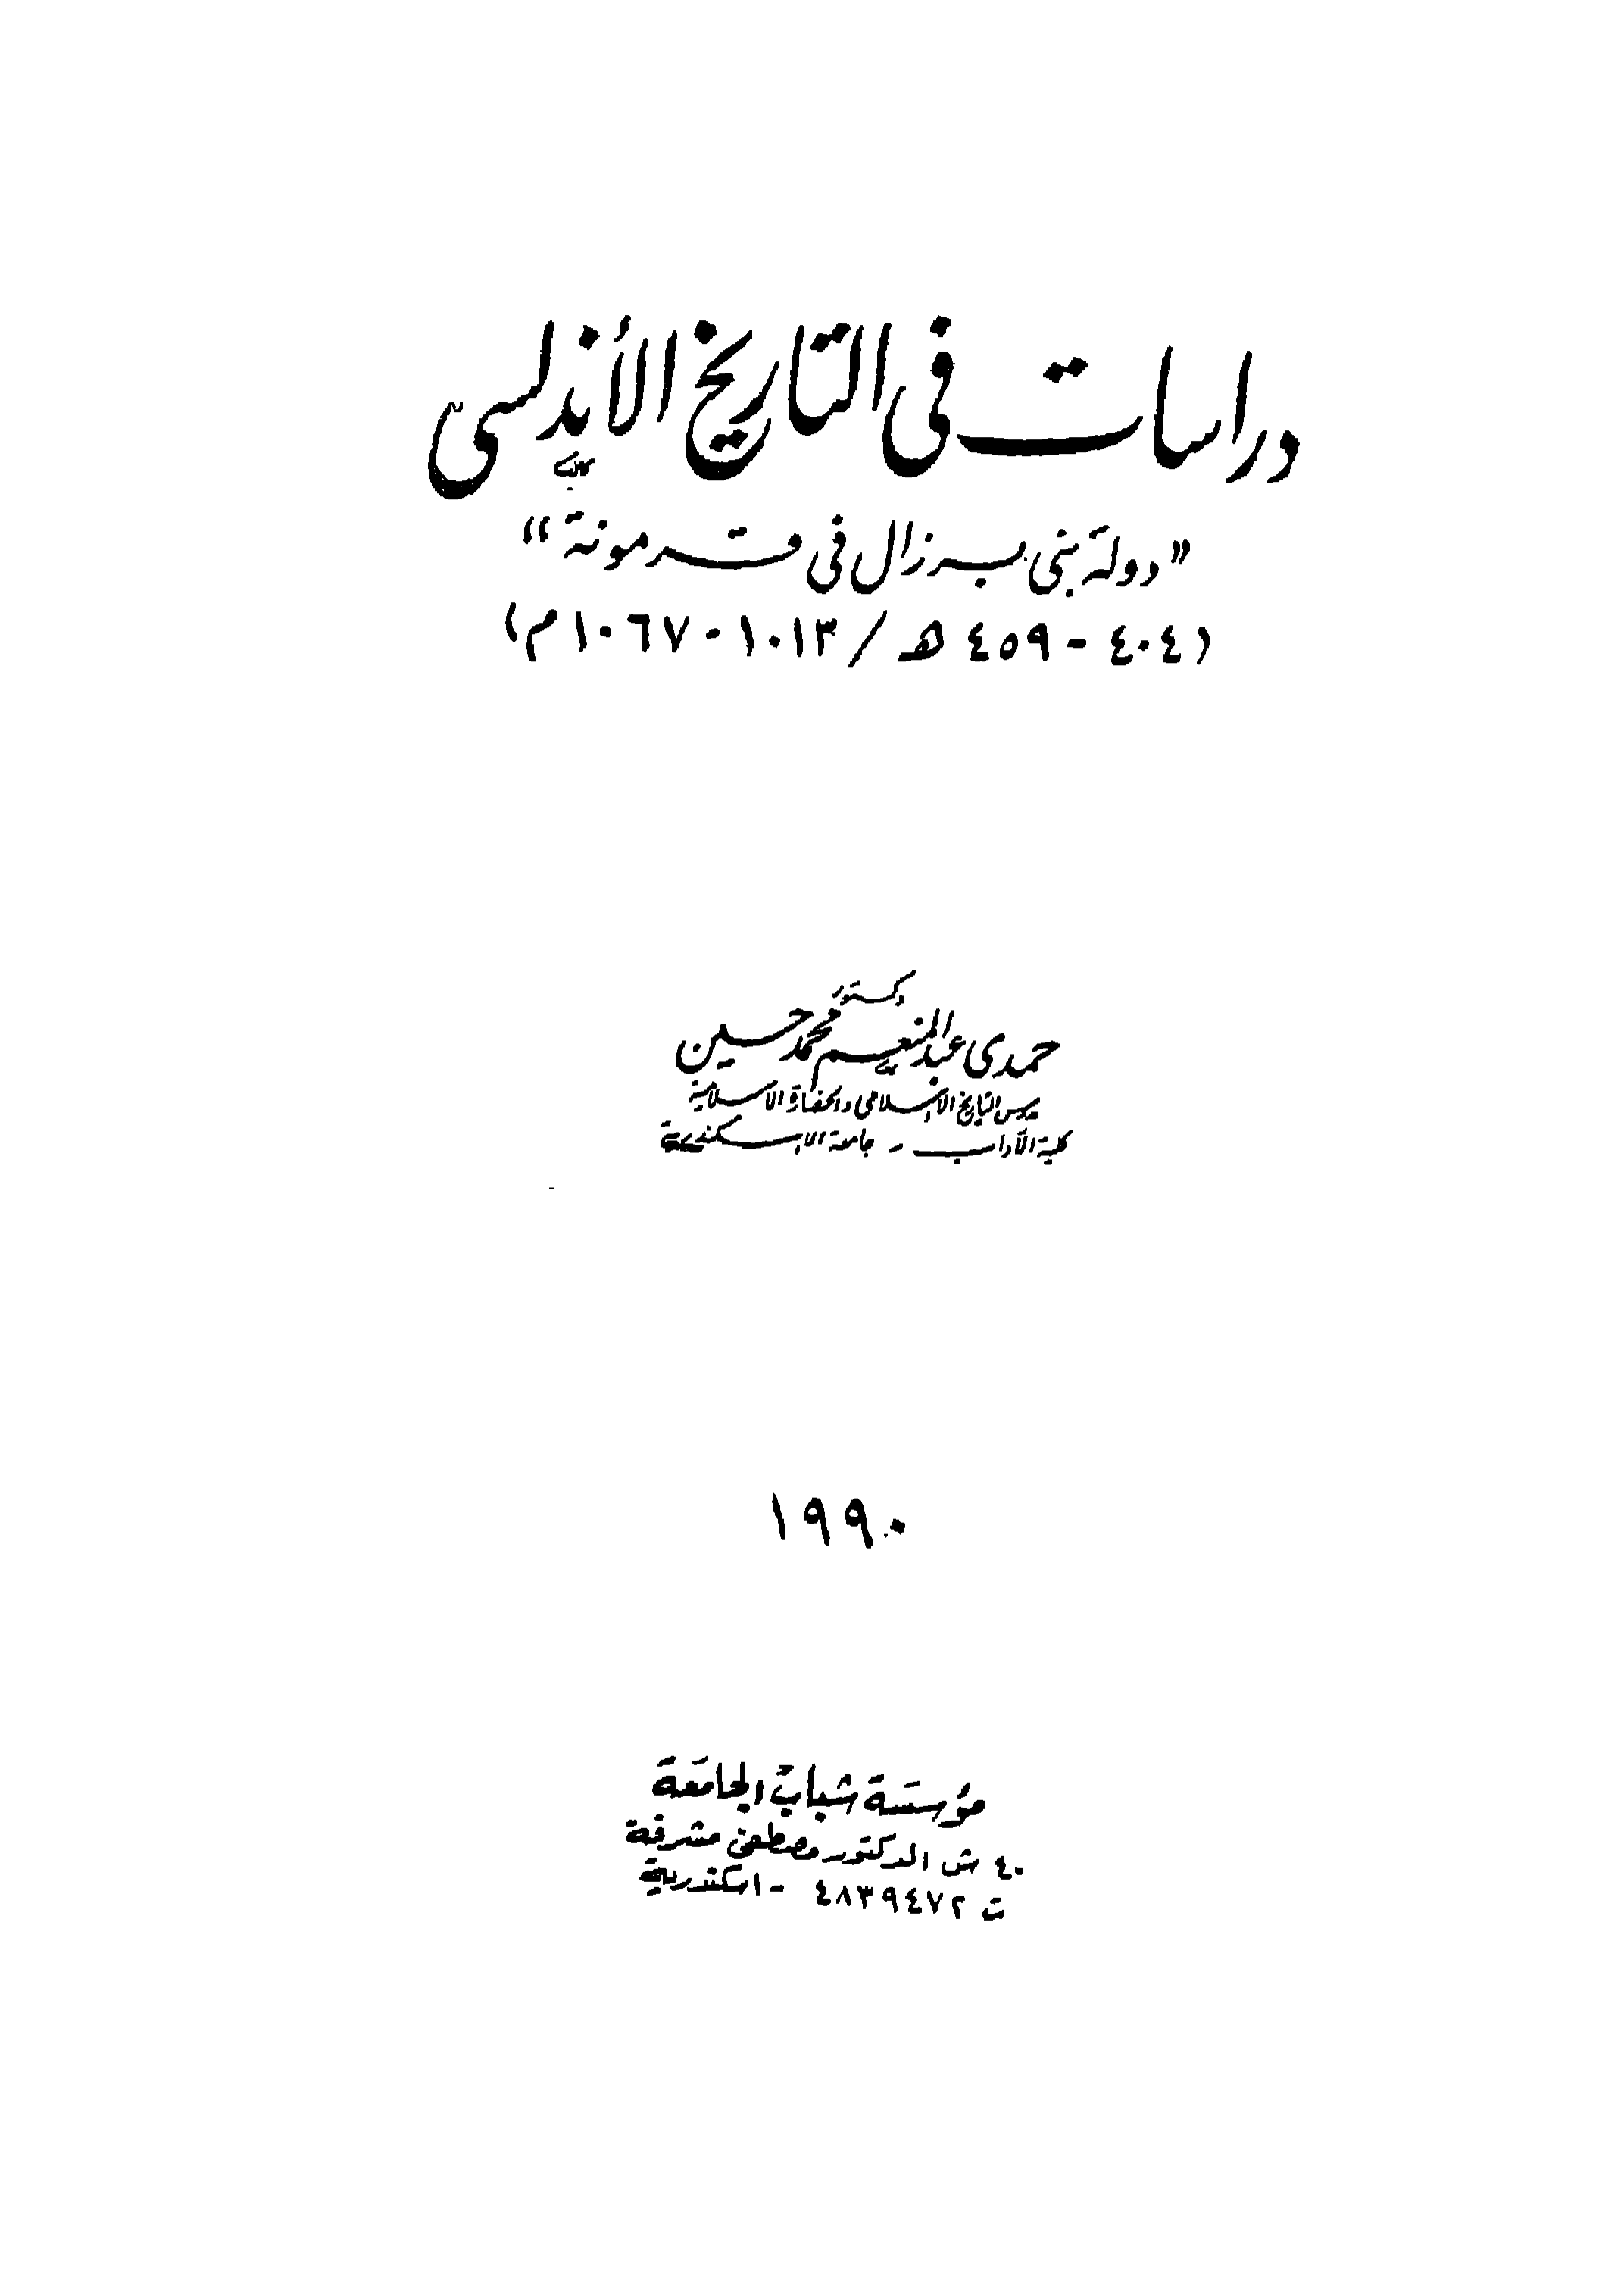 دراسات فى التاريخ الأندلسى
"دولة بنى برزال فى قرمونة"
(٤٠٤ - ٤٥٩ هـ / ١٠١٣ - ١٠٦٧ م)
دكتور
حمدى عبد المنعم محمد حسين
مدرس التاريخ الإسلامى والحضارة الاسلامية
كلية الآداب - جامعة الاسكندرية
١٩٩٠
مؤسسة شباب الجامعة
٤٠ ش الدكتور مصطفى مشرفة
ت ٤٨٣٩٤٧٢ - اسكندرية